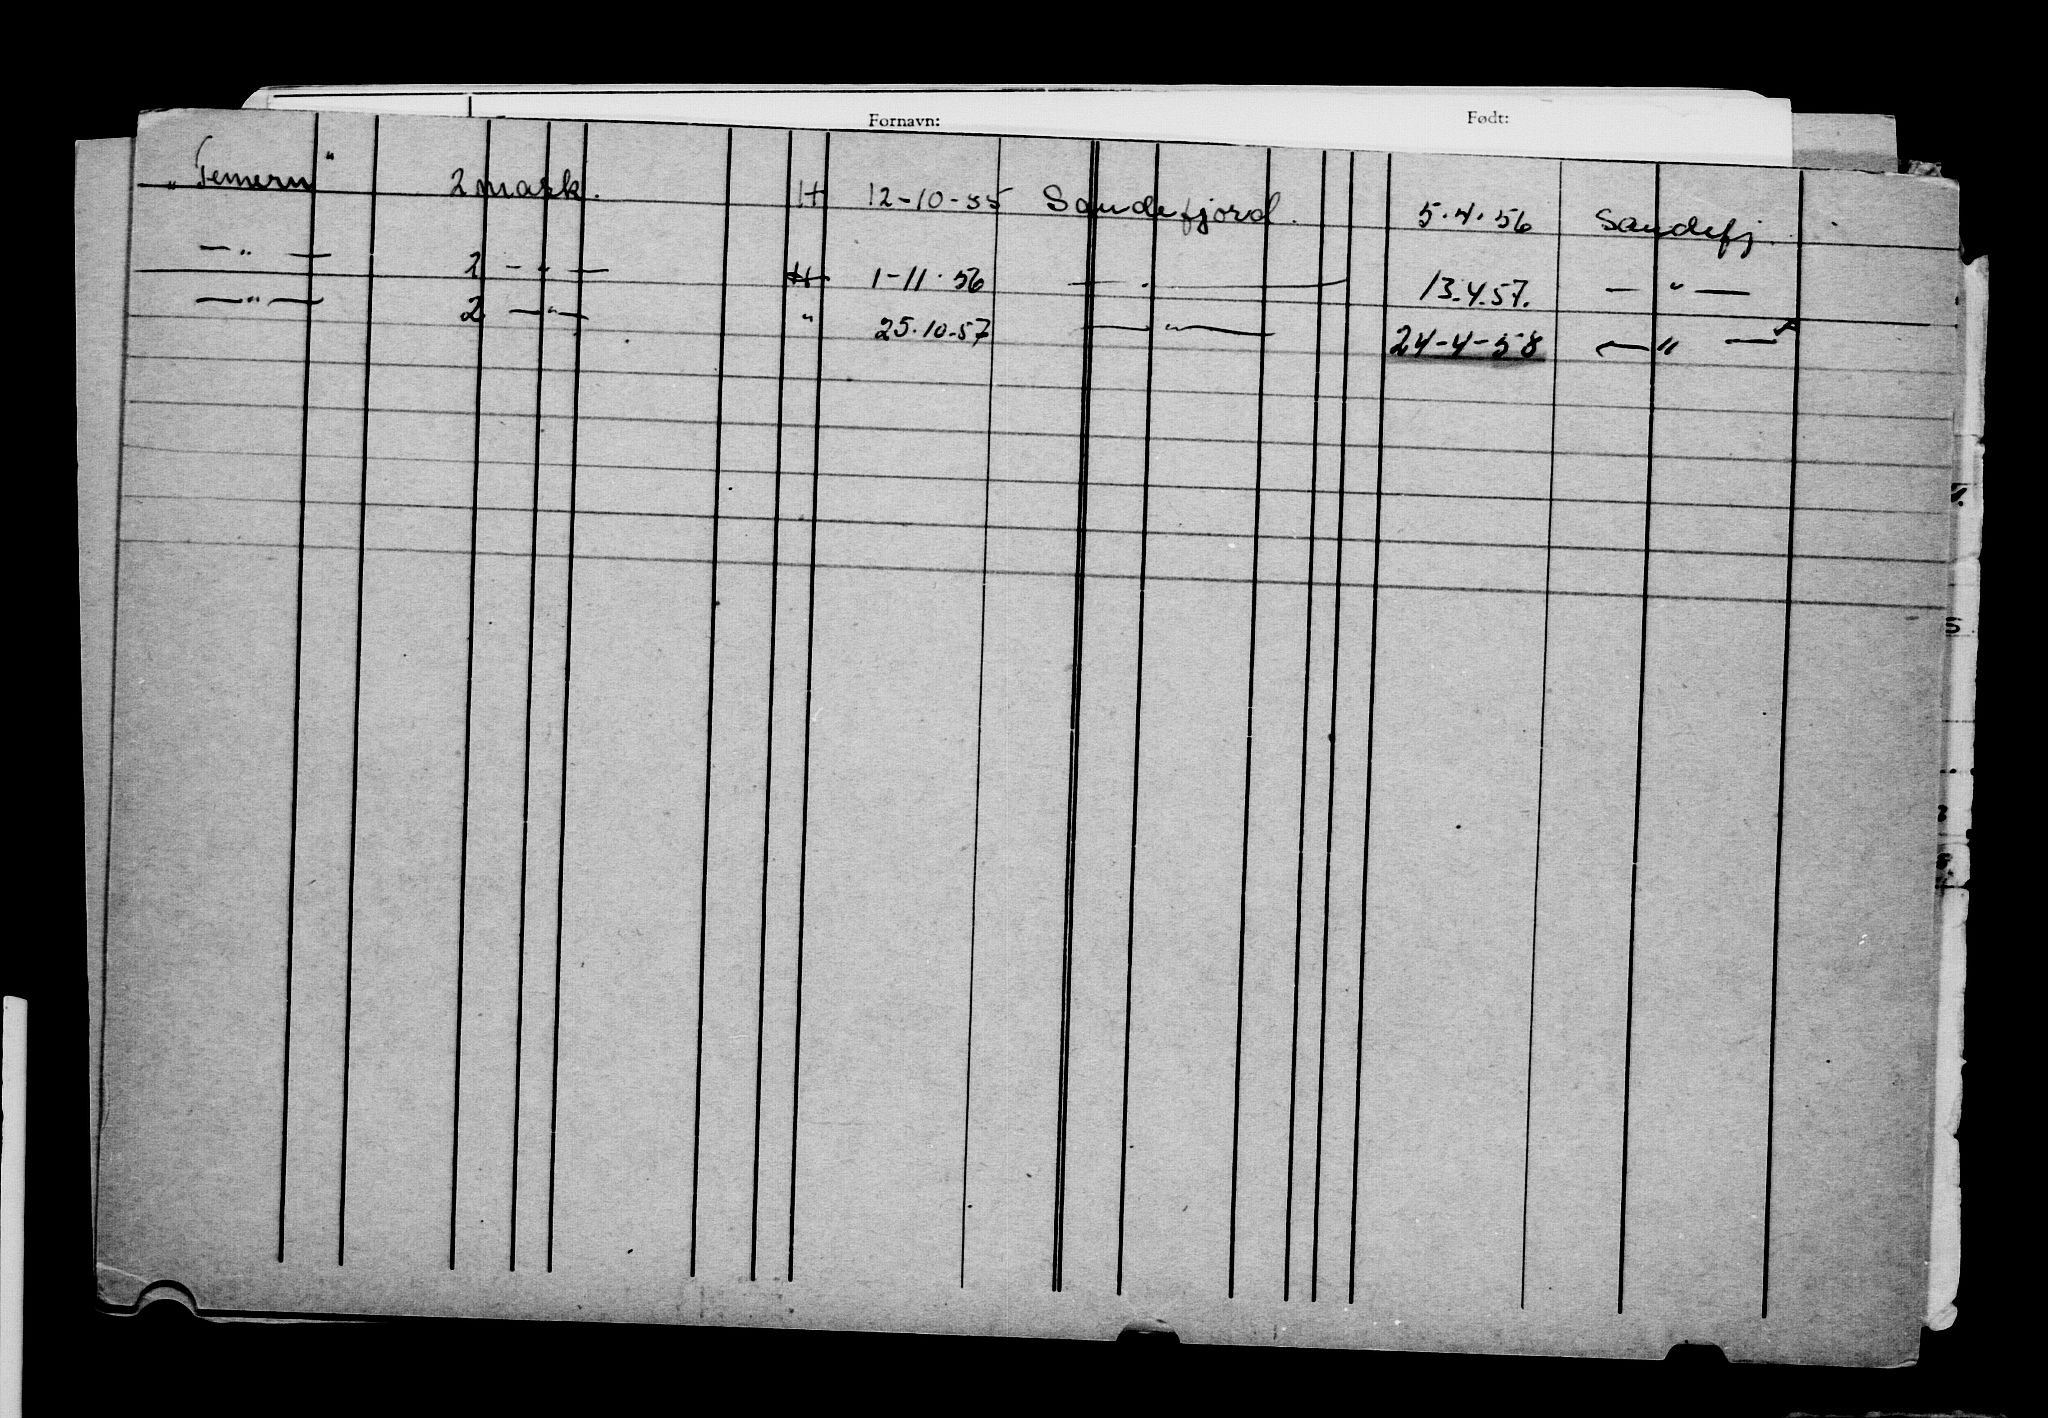 Fornavn: Født:
" Femern " 2 mask. H 12-10-55 Sandefjord. 5.4.56 Sandefj.
— " — 2 — " — H 1-11.56 — " — 13.4.57. — " —
— " — 2 — " — " 25.10.57 — " — 24-4-58 — " —